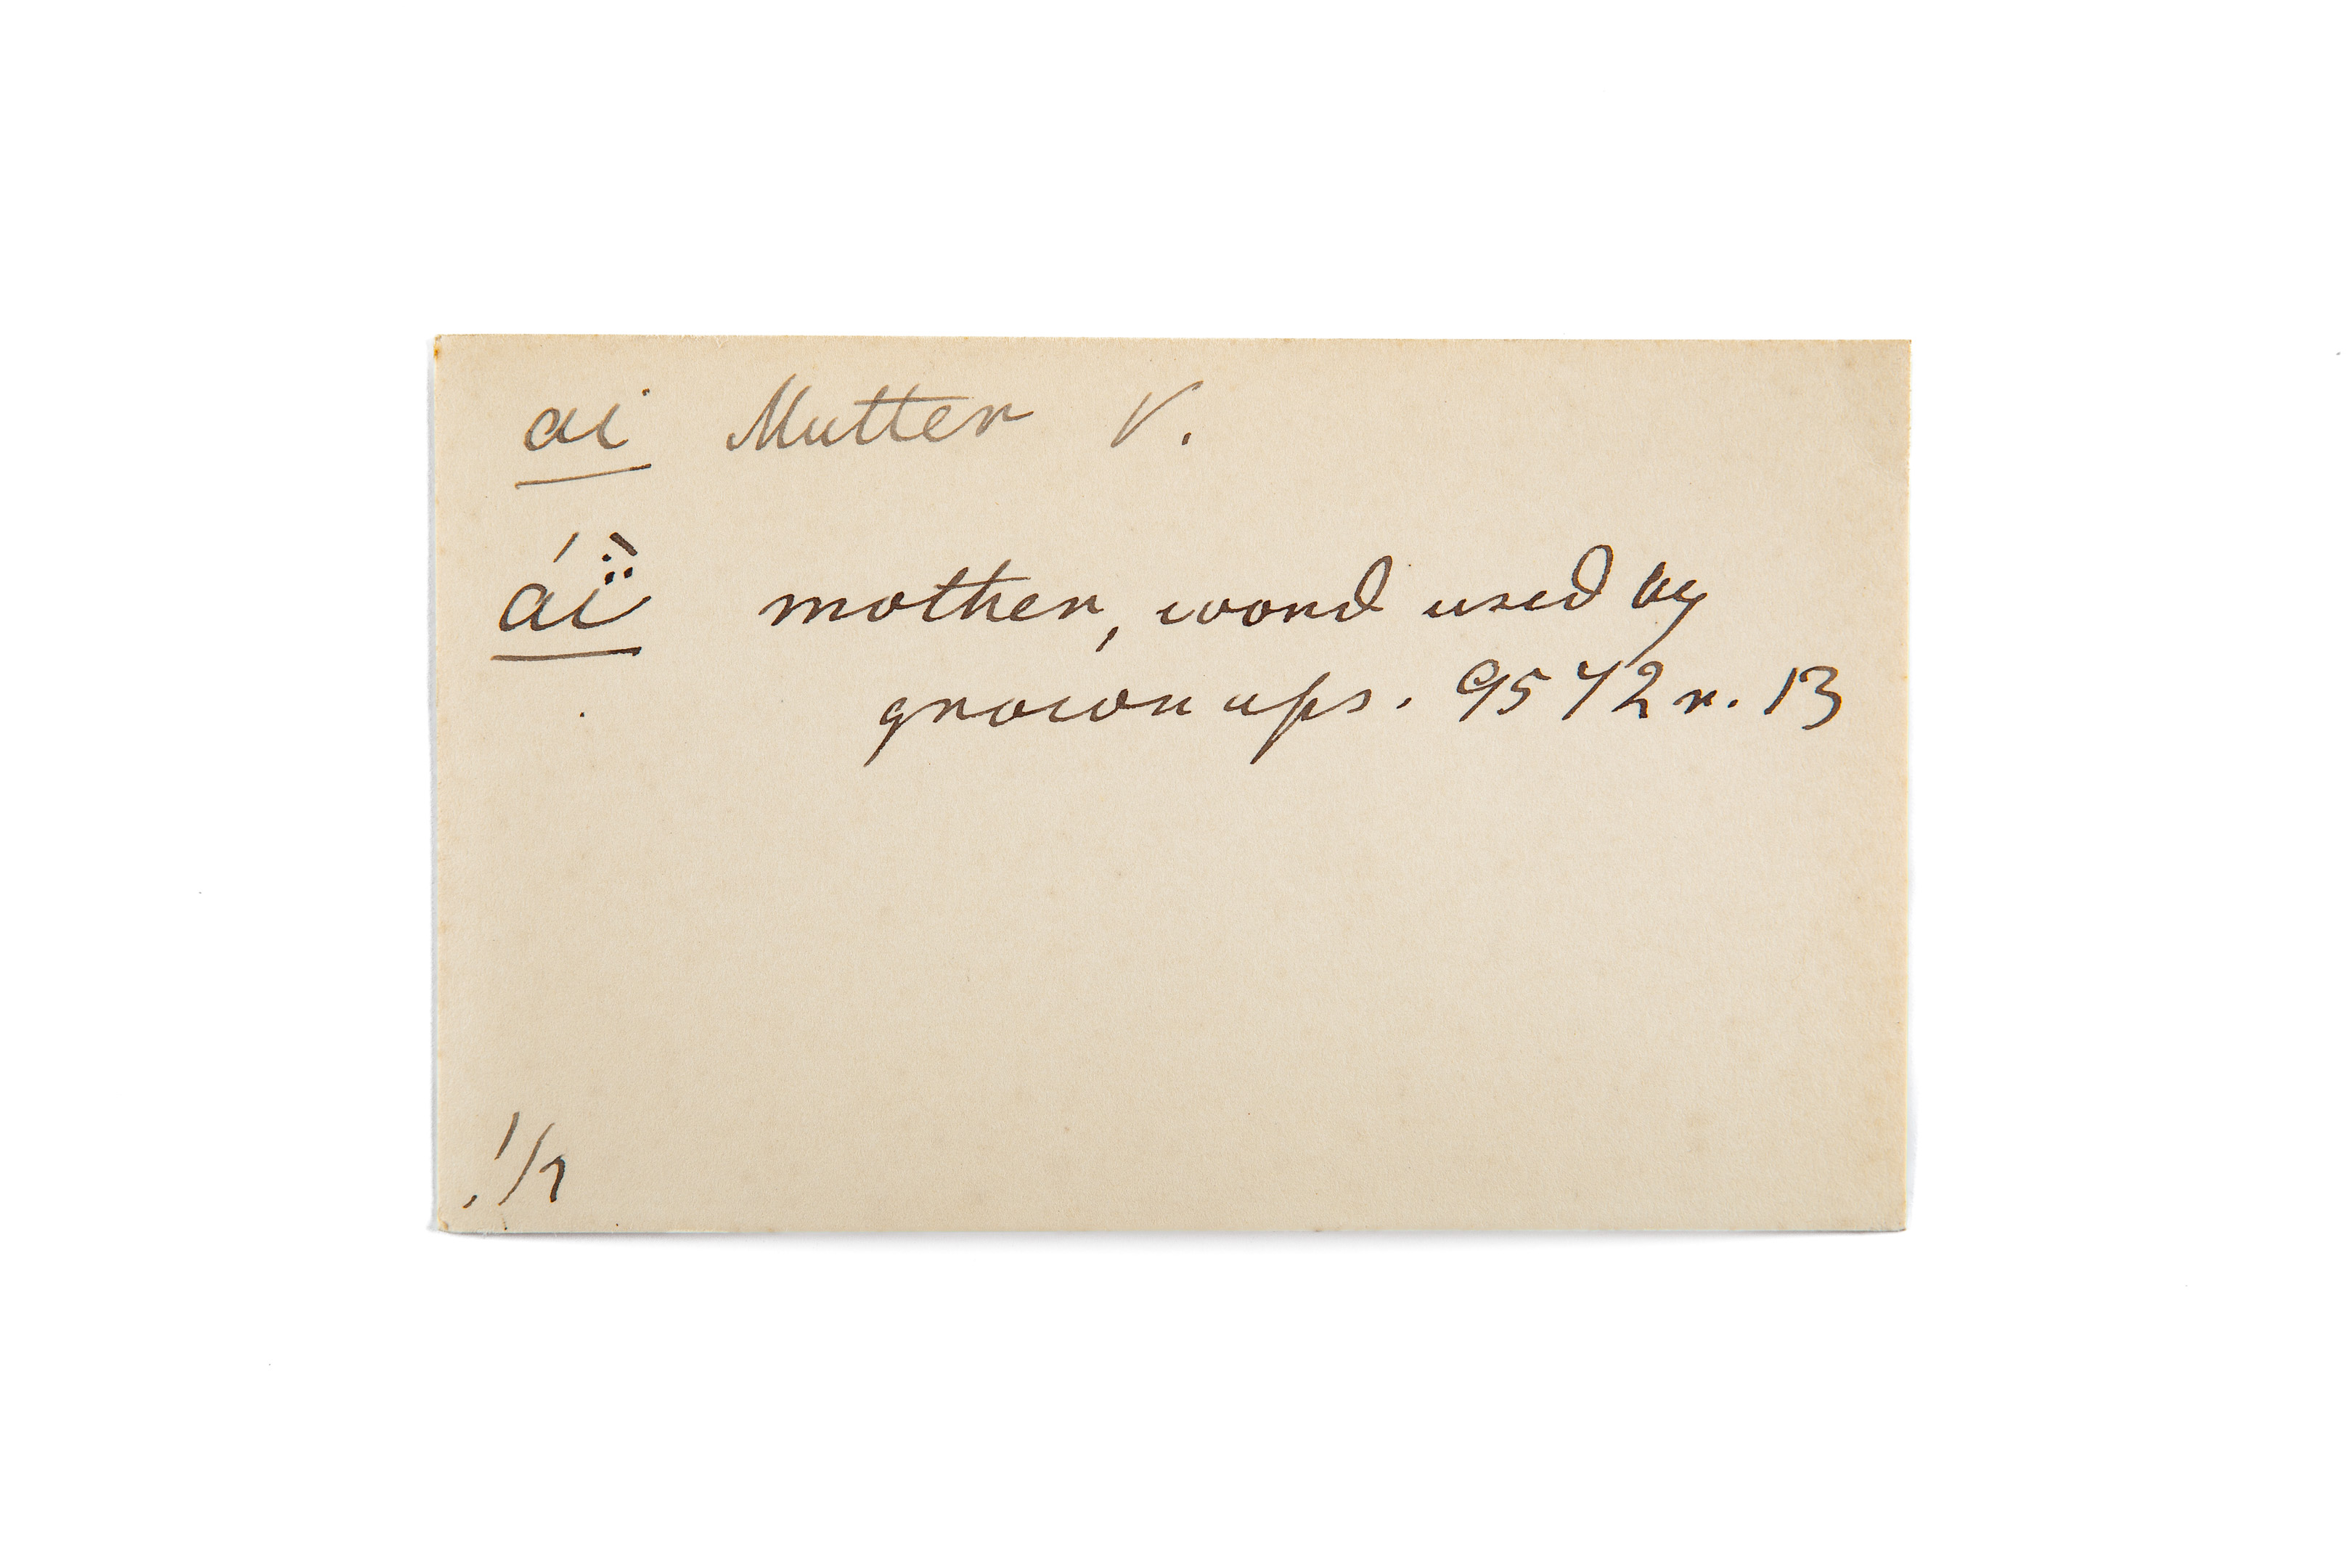 ai Mutter V.
áï mother, word used by
grown ups. 9572 r. 13